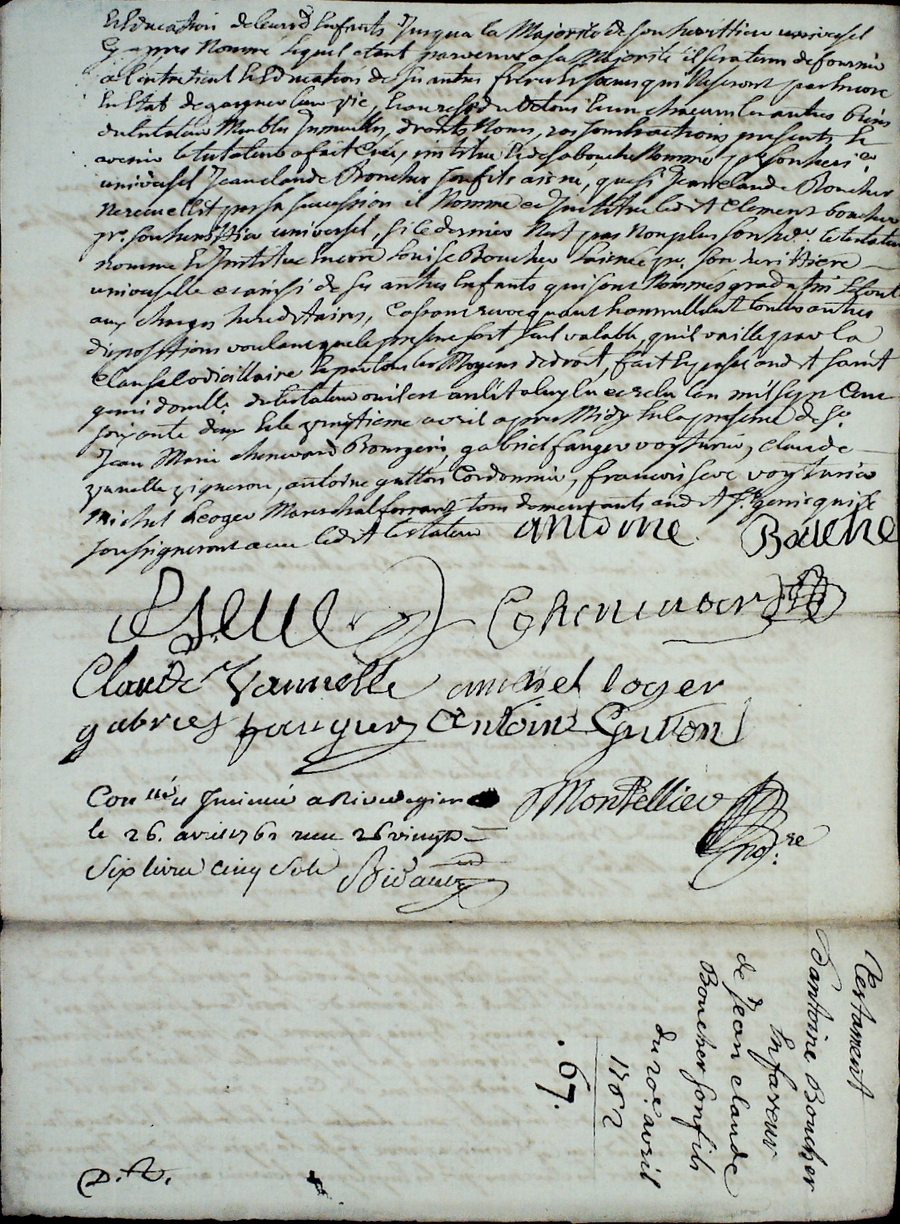 et Education de leursd Enfants Jusqua la Majorité de son herittier universel
Cy apres Nommé lequel etant parvenu a sa Majorité il sera tenu de fournir
a l'entretient et Education de ses autres freres et soeurs qui ne seront pas encore
En Etat de gagner leur vie, Et au residu de tous et un chacun les autres biens
dudit testateur Meubles Immeubles, droits Noms, raisons actions presents et
avenir le testateur a fait Créé, institué et de sa bouche Nommé pr son heri er
universel Jean claude Boucher son fils ainé, que si Jean claude Boucher
ne recueillit pas sa succession il Nomme et Institue led t Clement boucher
pr. son herittier universel, si ce dernier N'est pas Non plus son her. le testateur
nomme Et Institue Encore Louise Boucher pr. son herittiere
universelle et ainsi de ses autres Enfants qui sont Nommés graduatim Et tout
aux charges hereditaires, Cassant revocquant Et annullant touttes autres
dispositions voulant que le present soit seul valable, qu'il vaille par la
Clause Codicillaire Et par tous les Moyens de droit, fait Et passé aud t Saint
genis domlle. du testateur ou il est alité a luy lu et relu l'an mil sept Cent
soixante deux Et le vingtieme avril apres Midy En la presence de sr.
Jean Marie chenevard Bourgeois, gabriel fanger voyturier, Claude
vanelle vigneron, antoine gutton Cordonnier, francois seve voyturier
Michel Leoger Marechal ferrant tous demeurants aud t St. genis qui
soussigneront avec led t testateur antoine Bouche
f seve Chenevard
Claude Vannelle michel loger
gabriel fanger antoine Gutton
Con llé et Insinué a Rivedegier
le 26. avril 1762 reçu 26 vingt
six livres cinq sols
Montellier
no.re
Testament
D'antoine Boucher
En faveur
de Jean claude
Boucher son fils
du 20e. avril
1762
.67.
D. R.